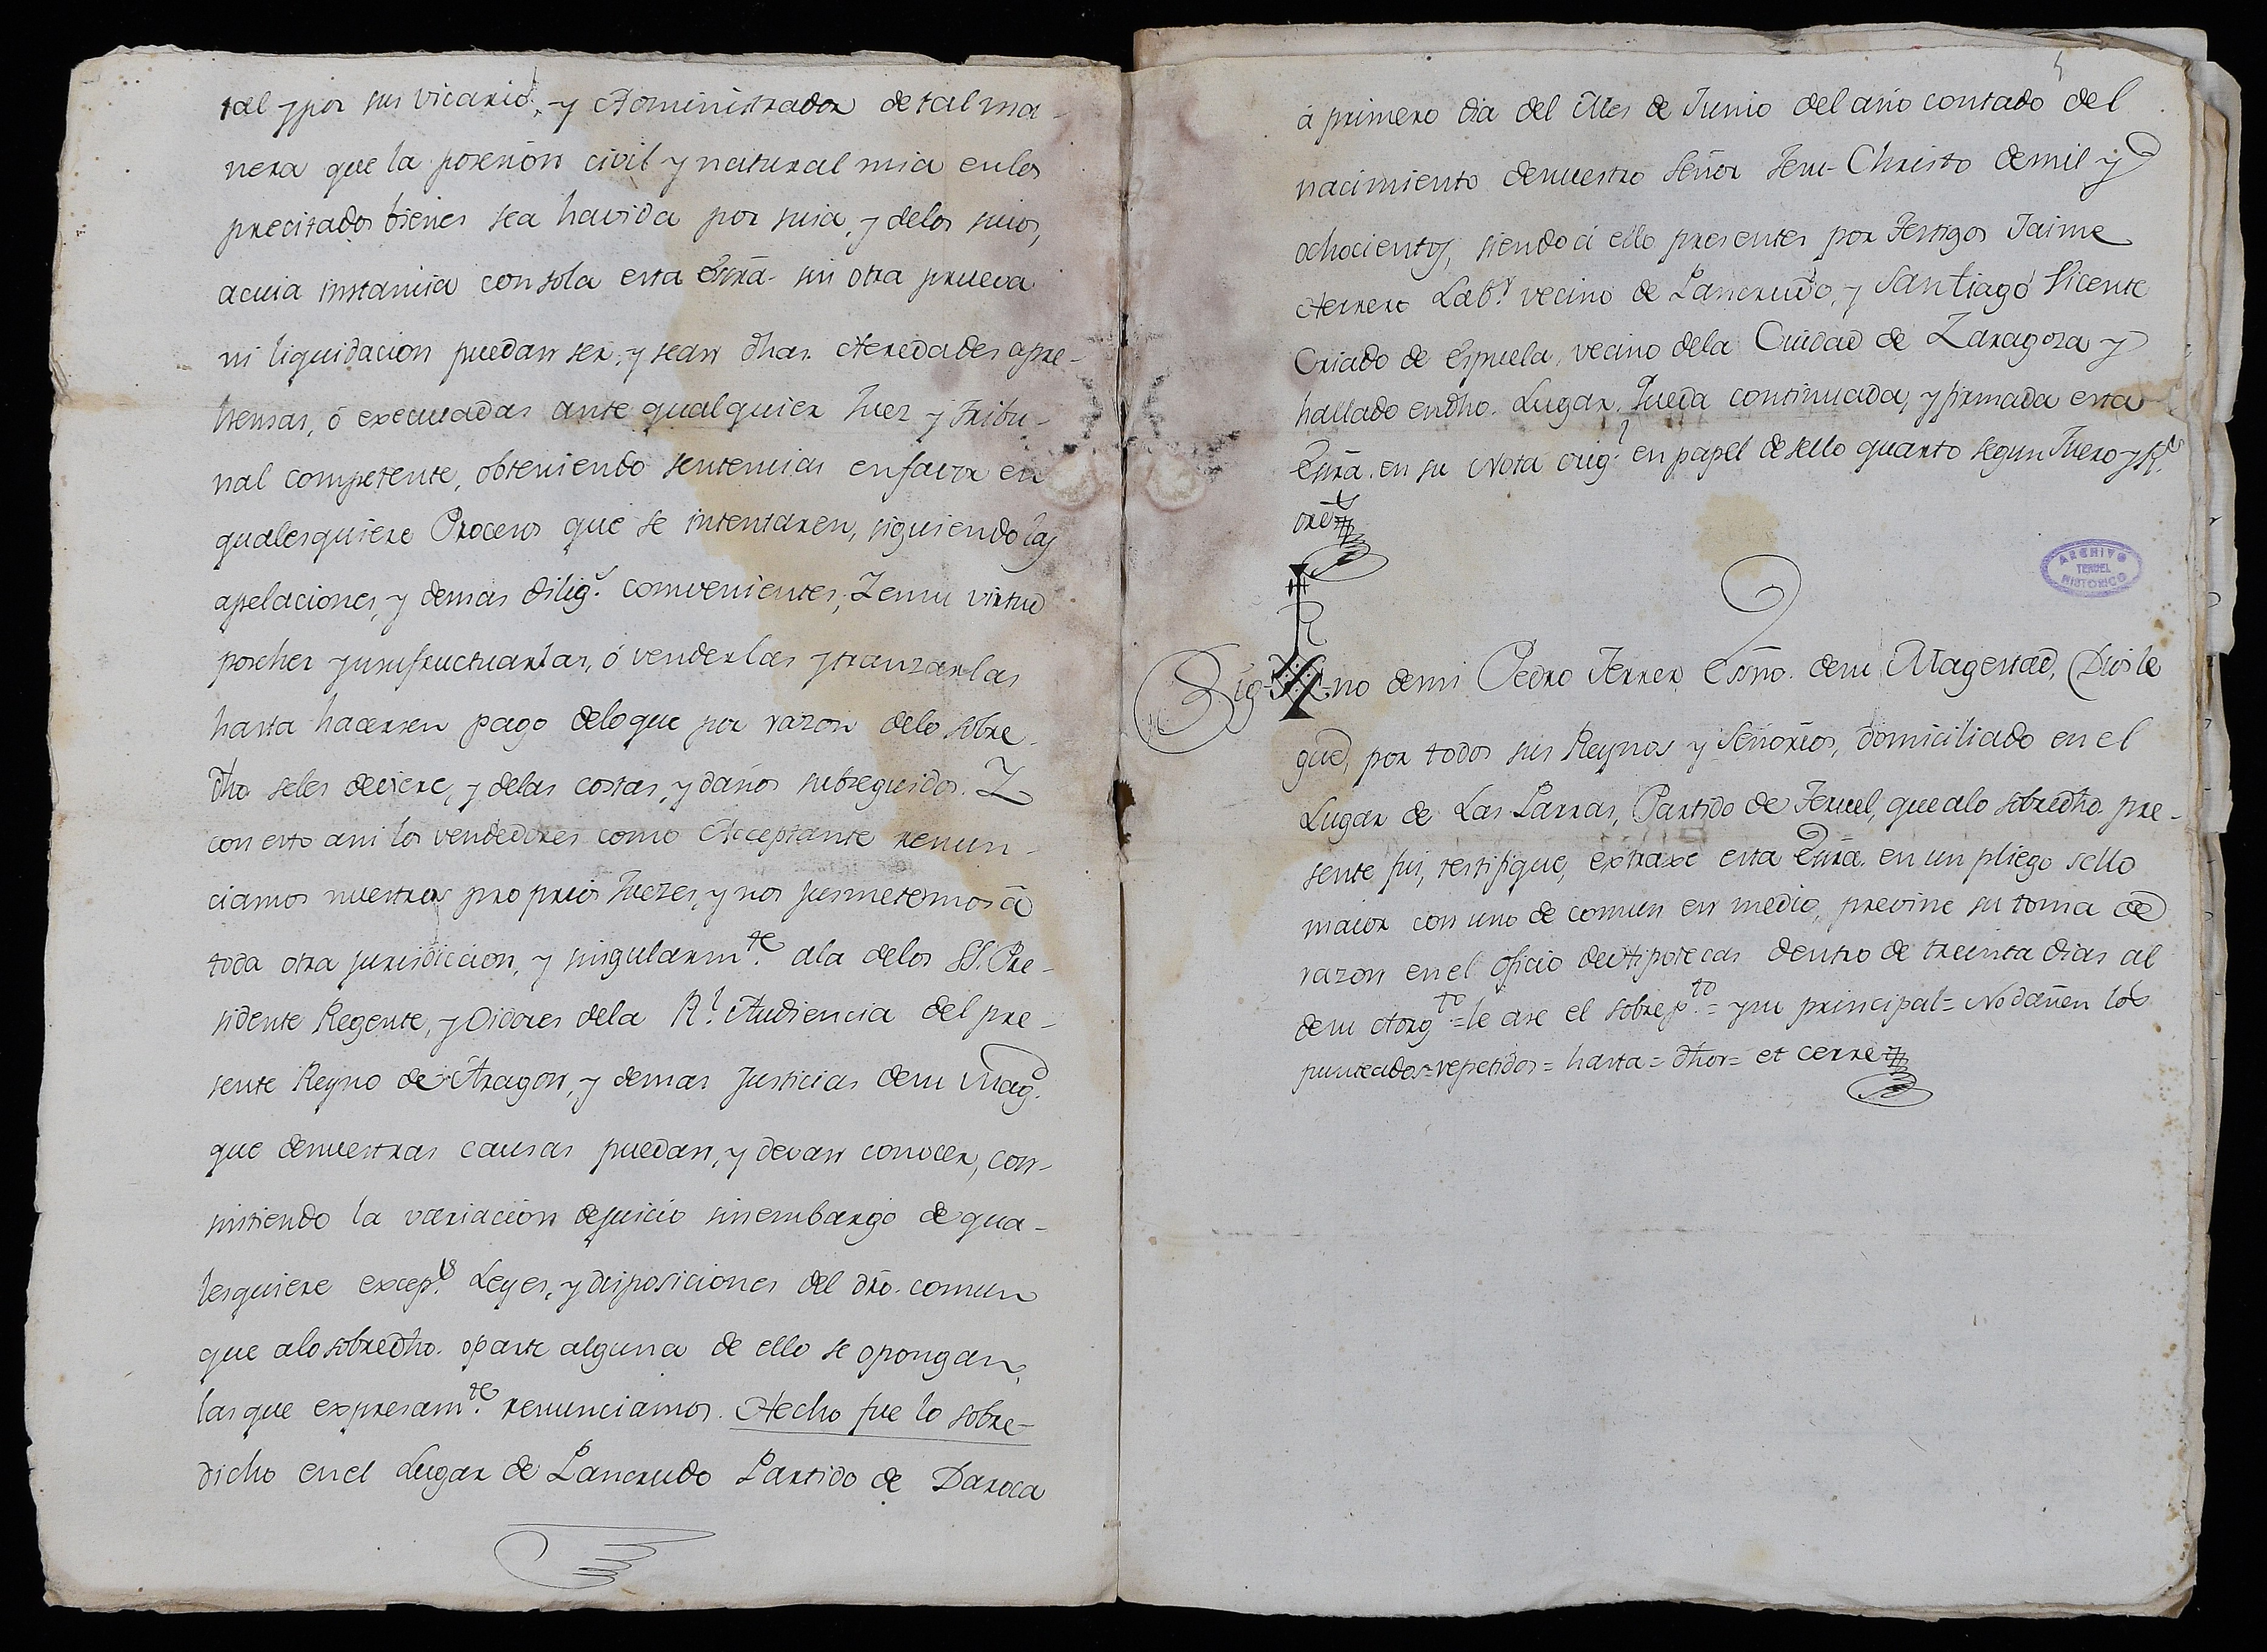 tal y por sus vicario, y Administrador de tal ma-
nera que la posesion civil y natural mia en los
precitados bienes sea havida por suia, y delos suios,
acuia instancia con sola esta Essrã. sin otra prueva
ni liquidacion puedan ser, y sean dhas. Heredades apre-
hensas, ó executadas ante qualquier Juez y Tribu-
nal competente, obteniendo sentencias enfavor en
qualesquiere Procesos que se intentaren, siguiendo las
apelaciones, y demas dilig.s convenientes; Y ensu virtud
poseher y usufructuarlas, ó venderlas y tranzarlas
hasta hacersen pago deloque por razon delo sobre-
dho seles deviere, y delas costas, y daños subseguidos. Y
con esto asi los vendedores como Acceptante renun-
ciamos nuestros proprios Juezes, y nos jusmetemos â
toda otra jurisdiccion, y singularm.te ala delos SS. Pre-
sidente Regente, y Oidores dela R.l Audiencia del pre-
sente Reyno de Aragon, y demas Justicias desu Mag.d
que denuestras causas puedan, y devan conocer, con-
sintiendo la variacion dejuicio sinembargo de qua-
lesquiere excep.s Leyes, y disposiciones del dro. comun
que alo sobredho. oparte alguna de ello se opongan,
las que expresam.te renunciamos. Hecho fue lo sobre-
dicho en el Lugar de Lancrudo Partido de Daroca
á primero dia del Mes de Junio del año contado del
nacimiento denuestro Señor Jesu-Christo demil y
ochocientos, siendo á ello presentes por Testigos Jaime
Herrero Lab.r vecino de Lancrudo, y Santiago Vicente
Criado de Espuela, vecino dela Ciudad de Zaragoza y
hallado endho. Lugar. Queda continuada, y firmada esta
Essrã. en su Nota orig.l en papel de sello quarto segun Fuero y R.s
ors
ARCHIVO HISTORICO TERUEL
Sig-no demi Pedro Ferrer Essno. desu Magestad, (Dios le
gue) por todos sus Reynos y Señorios, domiciliado en el
Lugar de Las Parras, Partido de Teruel, que alo sobredho. pre-
sente fui, testifique, extraxe esta Essrã. en un pliego sello
maior con uno de comun en medio, previne su toma de
razon en el oficio de Hipotecas dentro de treinta dias al
desu otorg.to = le ase el sobrep.to = y su principal = No dañen los
punteados = repetidos = hasta = dhor = et cerre